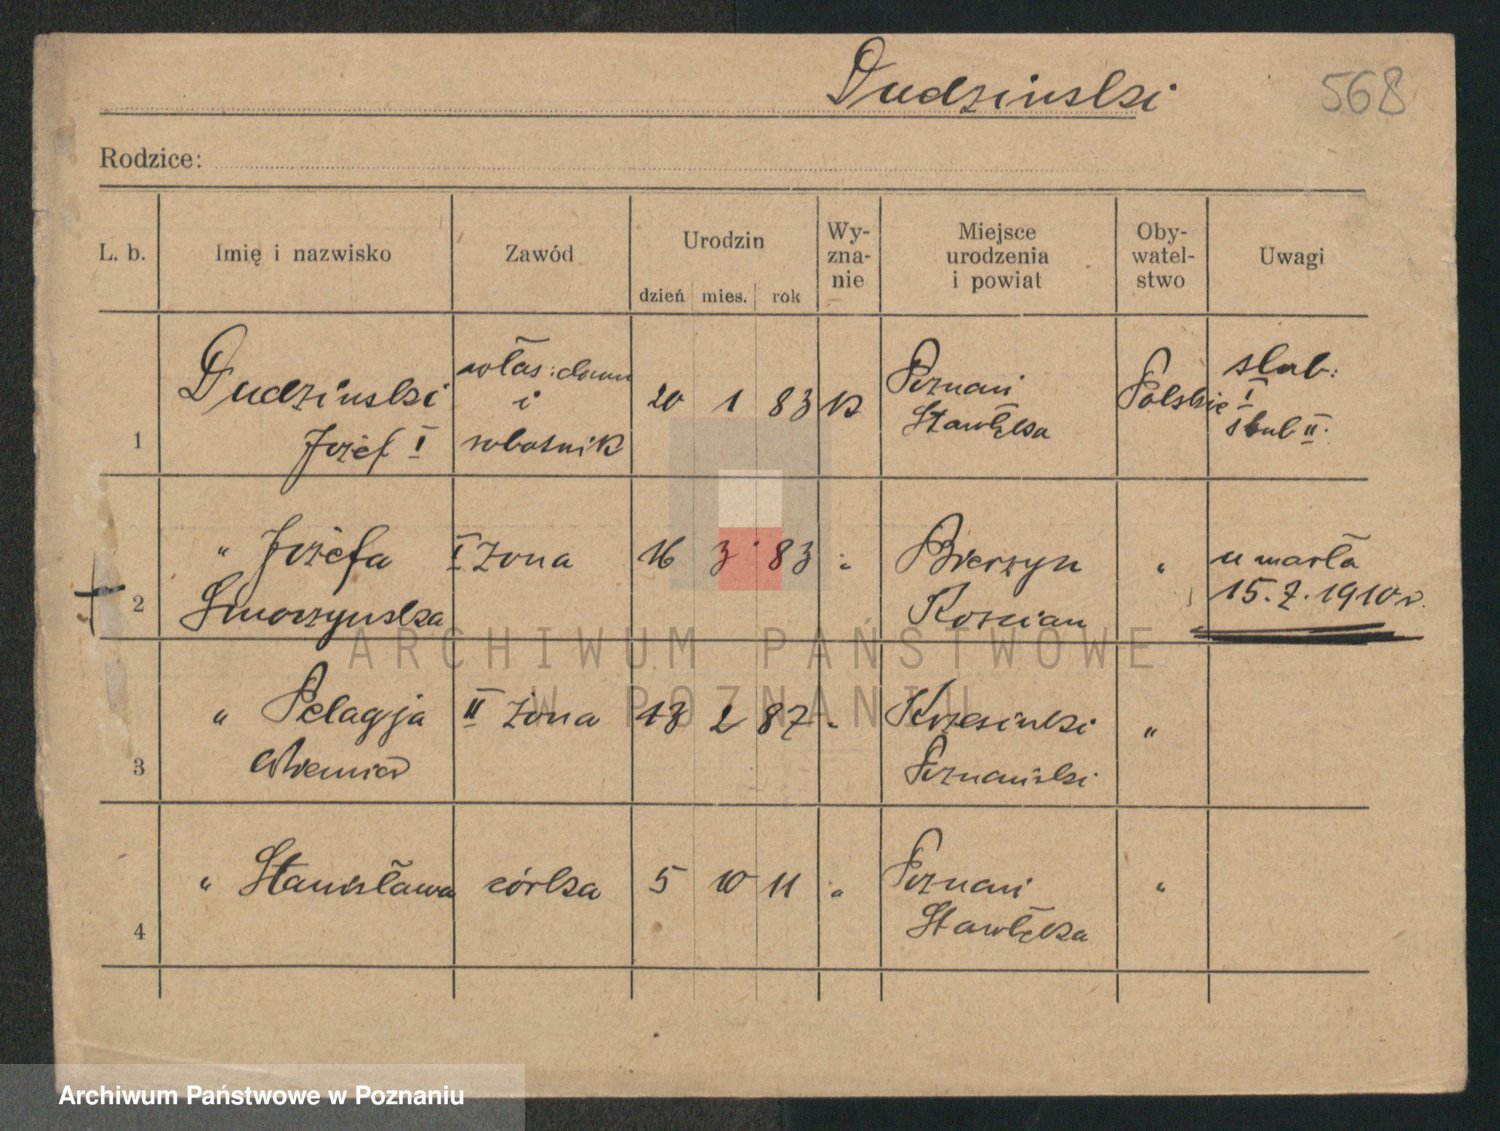 Dudzinski 568
Rodzice:
L. b. Imię i nazwisko Zawód Urodzin Wy-zna-nie Miejsce urodzenia i powiat Oby-watel-stwo Uwagi
dzień mies. rok
Dudzinski włas: domu Poznań slub:
i 20 1 83 K Stawłęka Polskie I
1 Józef I robotnik slub II.
" Józefa I żona 16 3 83 " "  umarła
2 Koscian 15. 7. 1910 r.
" Pelagja II żona 18 2 87 " Krzesinki "
3 Poznański
" Stanisława córka 5 10 11 " Poznań "
4 Stawłęka
ARCHIWUM PAŃSTWOWE
W POZNANIU
Archiwum Państwowe w Poznaniu